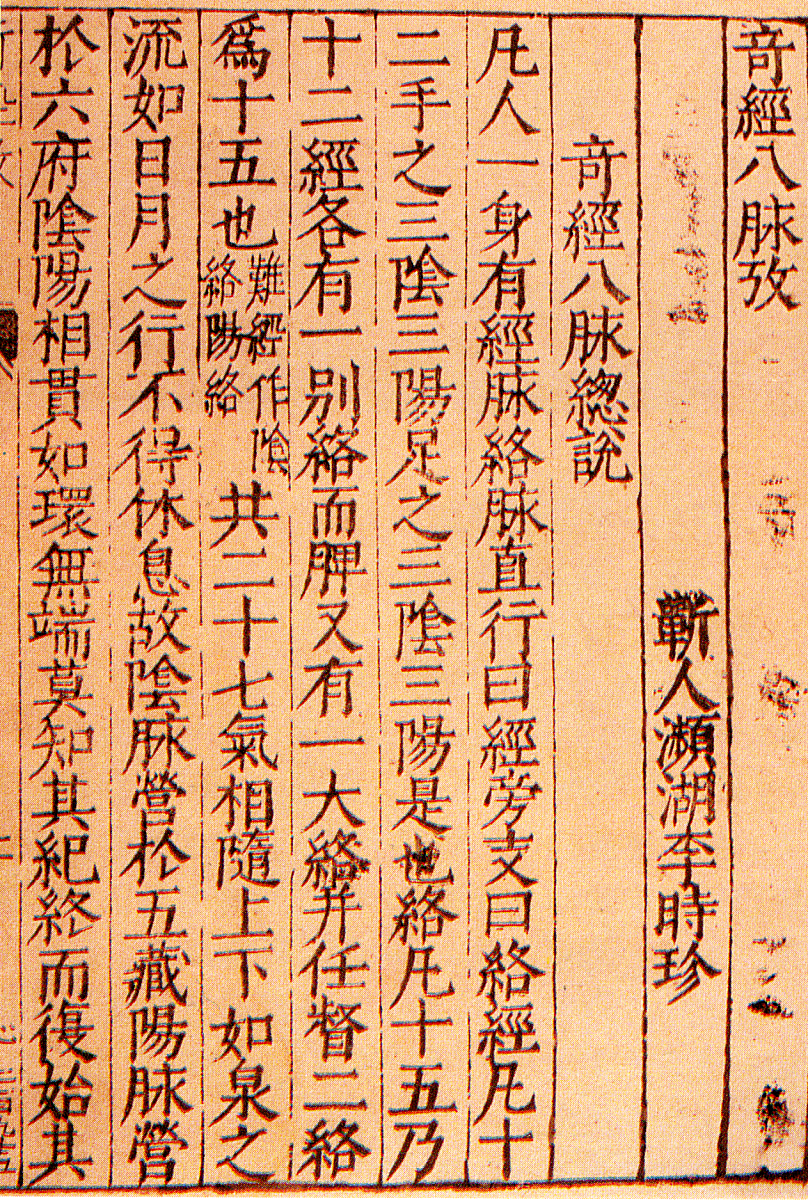 奇經八脉攷
蘄人瀕湖李時珍
奇經八脉總說
凡人一身有經脉絡脉直行曰經旁支曰絡經凡十
二手之三陰三陽足之三陰三陽是也絡凡十五乃
十二經各有一別絡而脾又有一大絡并任督二絡
爲十五也難經作陰絡陽絡共二十七氣相隨上下如泉之
流如日月之行不得休息故陰脉營於五藏陽脉營
於六府陰陽相貫如環無端莫知其紀終而復始其